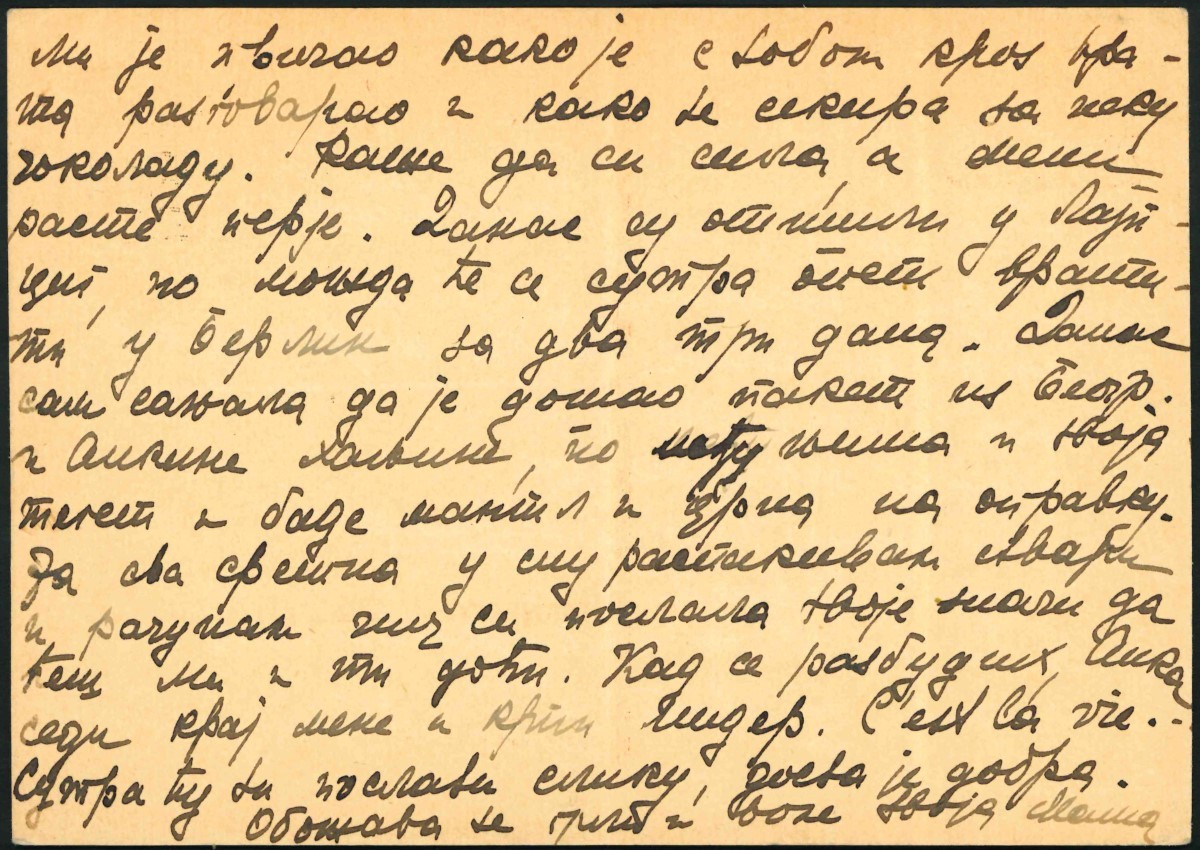 ми је причао како је с тобом кроз вра-
та разговарао и како се секира за неку
чоколаду. Каже да си смела, а мени
расте перје. Данас су отишли у Лајп-
циг, но можда ће се сутра опет врати-
ти у Берлин за два три дана. Данас
сам сањала да је дошао пакет из Беогр.
и Анкине хаљине, но међу њима и твоја
тегет и баде мантил и црна на оправку.
Ја сва сретна у сну распакивам ствари
и рачунам чим си послала твоје значи да
ћеш ми и ти доћи. Кад се разбудих, Анка
седи крај мене и крпи Cest la vie.-
Сутра ћу ти послати слику, доста је добра.
Обожава те грли и воли твоја Мама